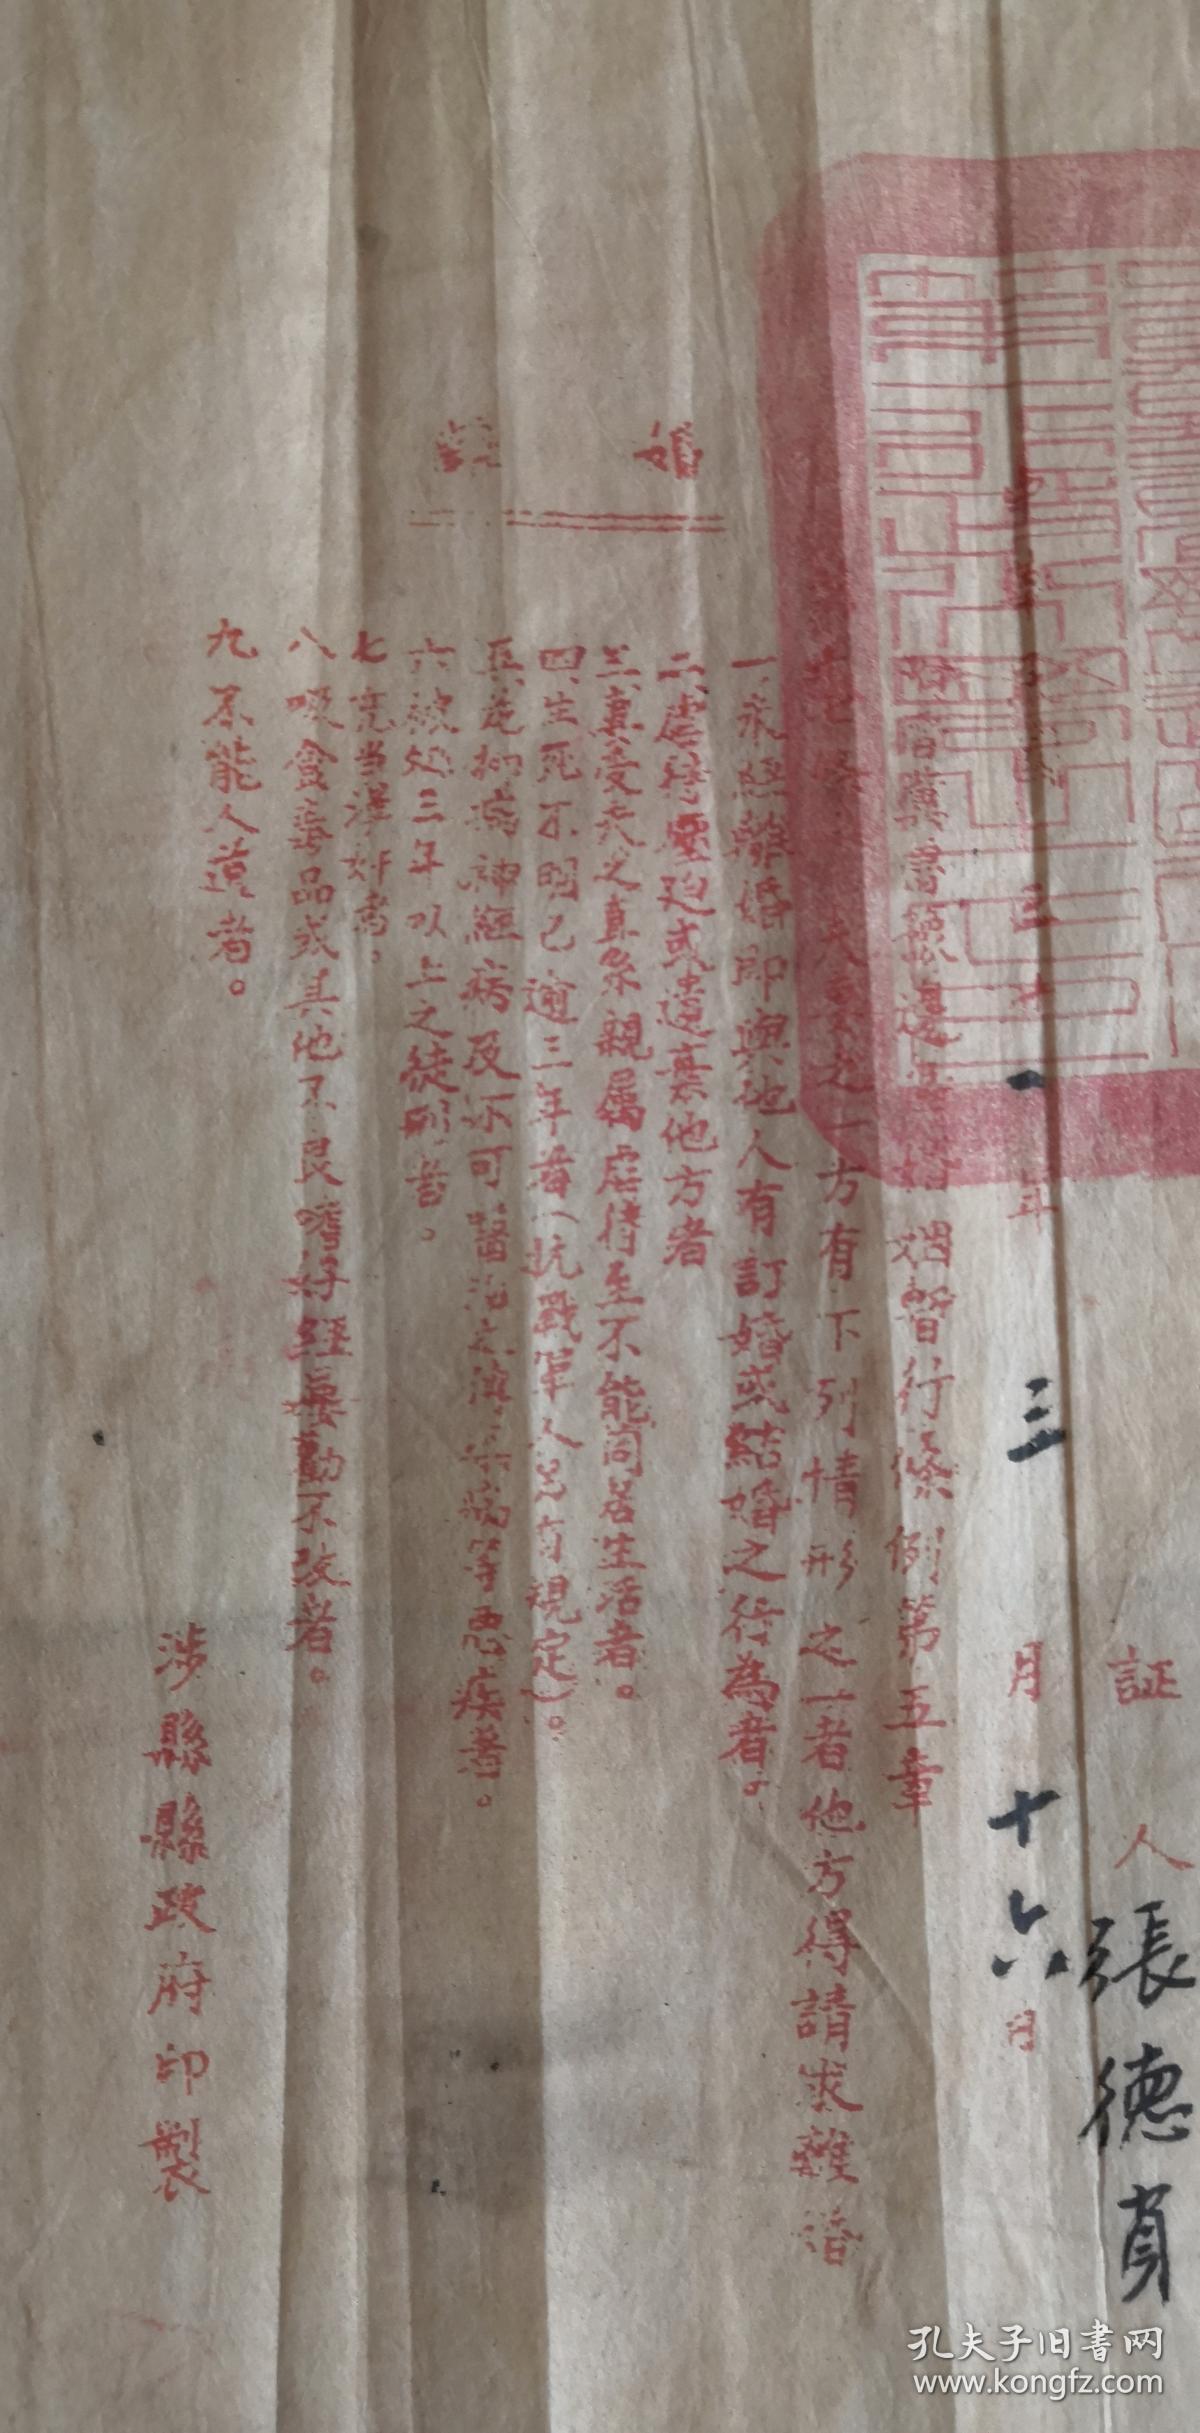 証 人 張德
一年 三 月 十六日
晋冀魯豫邊區婚姻暫行條例第五章
夫妻之一方有下列情形之一者他方得請求離婚
一、未經離婚即與他人有訂婚或結婚之行為者。
二、虐待壓迫或遺棄他方者
三、妻受夫之直系親属虐待至不能同居生活者。
四、生死不明已逾三年者(抗戰軍人另有規定)。
五、花柳病神經病及不可醫治之傳染病等惡疾者。
六、被処三年以上之徒刑者。
七、充当漢奸者。
八、吸食毒品或其他不良嗜好経屢勸不改者。
九、不能人道者。
婚
涉縣縣政府印製
孔夫子旧書网
www.kongfz.com